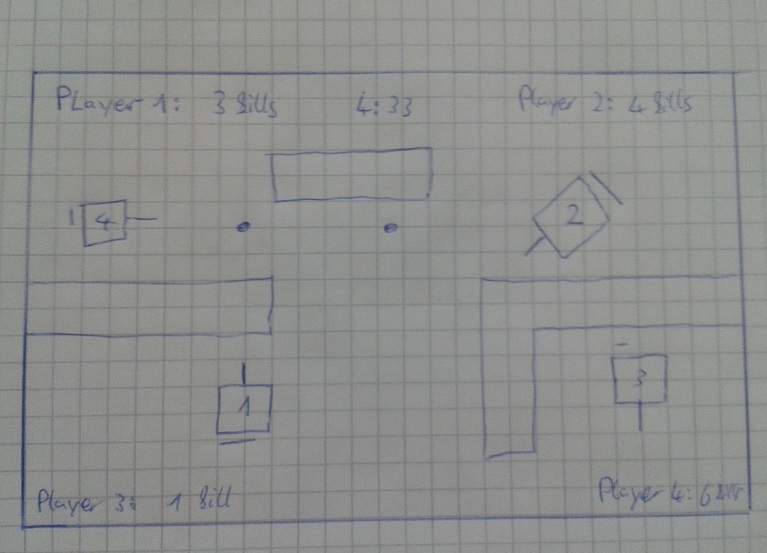 Player 1: 3 Bills 4:33 Player 2: 4 Bills
4
2
3
1
Player 3: 1 Bill Player 4: 6 Bills